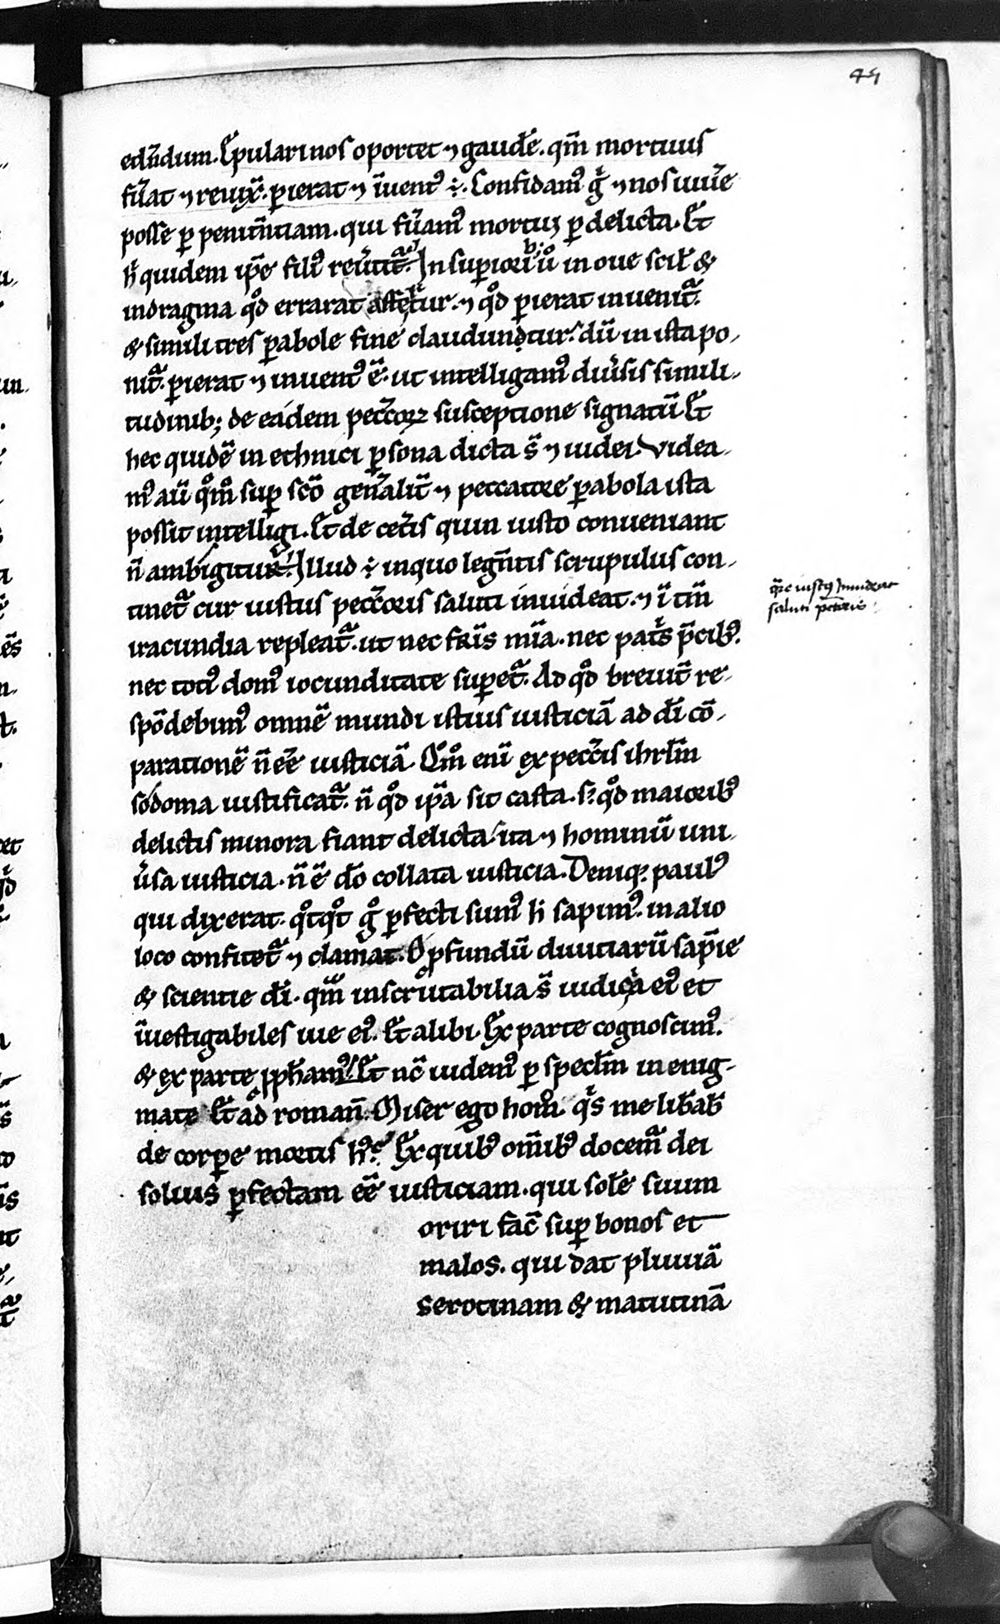 49
edndum. Epulari nos oportet ⁊ gaudẽ. qm̃ mortuus
fũat ⁊ reuix̃. ꝑierat ⁊ ĩuent᷒ ÷. Confidam᷒ gͦ ⁊ nos uiuẽ
posse ꝑ penitñtiam. qui fũam᷒ mortui ꝑ delicta. Et
hͦ quidem ip̃e fili᷒ reũtit᷑. In superiorib; uͦ in oue scil̃ &
in dragma qͦd errarat asseͥtur. ⁊ qͦd ꝑierat inuenit᷑.
& simili tres ꝑabole finẽ claudunt᷑. dũ in ista po-
nit᷑. ꝑierat ⁊ inuent᷒ ẽ. ut intelligam᷒ diũsis simili-
tudinib; de eadem pecc̃oꝝ susceptione signatũ Et
hec quidẽ in ethnici ꝑsona dicta s̃ ⁊ iudei. Videa-
m᷒ aũ qͦmͦ suꝑ sc̃o gen̑alit̃ ⁊ peccatore ꝑabola ista
possit intelligi. Et de cet̃is quin iusto conueniant
ñ ambigitur. Illud ÷ in quo legñtis scrupulus con-
tinet᷑ cur iustus pecc̃oris saluti inuideat. ⁊ ĩ tm̃
iracundia repleat᷑. ut nec fr̃is mĩa. nec pat̑s p̃cib᷒.
nec toti᷒ dom᷒ iocunditate supet᷑. Ad qͦd breuit̃ re-
spõdebim᷒ omnẽ mundi istius iusticiã ad dĩ cõ-
parationẽ ñ eẽ iusticiã. Qͦmͦ enĩ ex pecc̃is ihrl̃m
sodoma iustificat᷑. ñ qͦd ip̃a sit casta. s; qͦd maiorib᷒
delictis minora fiant delicta. ita ⁊ hominũ uni-
ũsa iusticia. ñ ẽ dõ collata iusticia. Deniq; paul᷒
qui dixerat. qͦtqͦt gͦ ꝑfecti sum᷒ h̃ sapim᷒. in alio
loco confitet᷑ ⁊ clamat. O ꝓfundũ diuitiarũ sap̃ie
& scientie dĩ. qm̃ inscrutabilia s̃ iudicia ei᷒ et
ĩuestigabiles uie ei᷒. Et alibi. Ex parte cognoscim᷒.
& ex parte ꝓph̃am᷒. Et nc̃ uidem᷒ ꝑ specl̃m in enig-
mate Et ad romañ. Miser ego homͦ. qͥs me lib̃ab̃
de corꝑe mortis h᷒. Ex quib᷒ om̃ib᷒ docem᷑ dei
solius ꝑfectam eẽ iusticiam. qui solẽ suum
oriri fac̃ suꝑ bonos et
malos. qui dat pluuiã
serotinam & matutinã
q̃re iust᷒ inuideat
saluti p̃ctoris